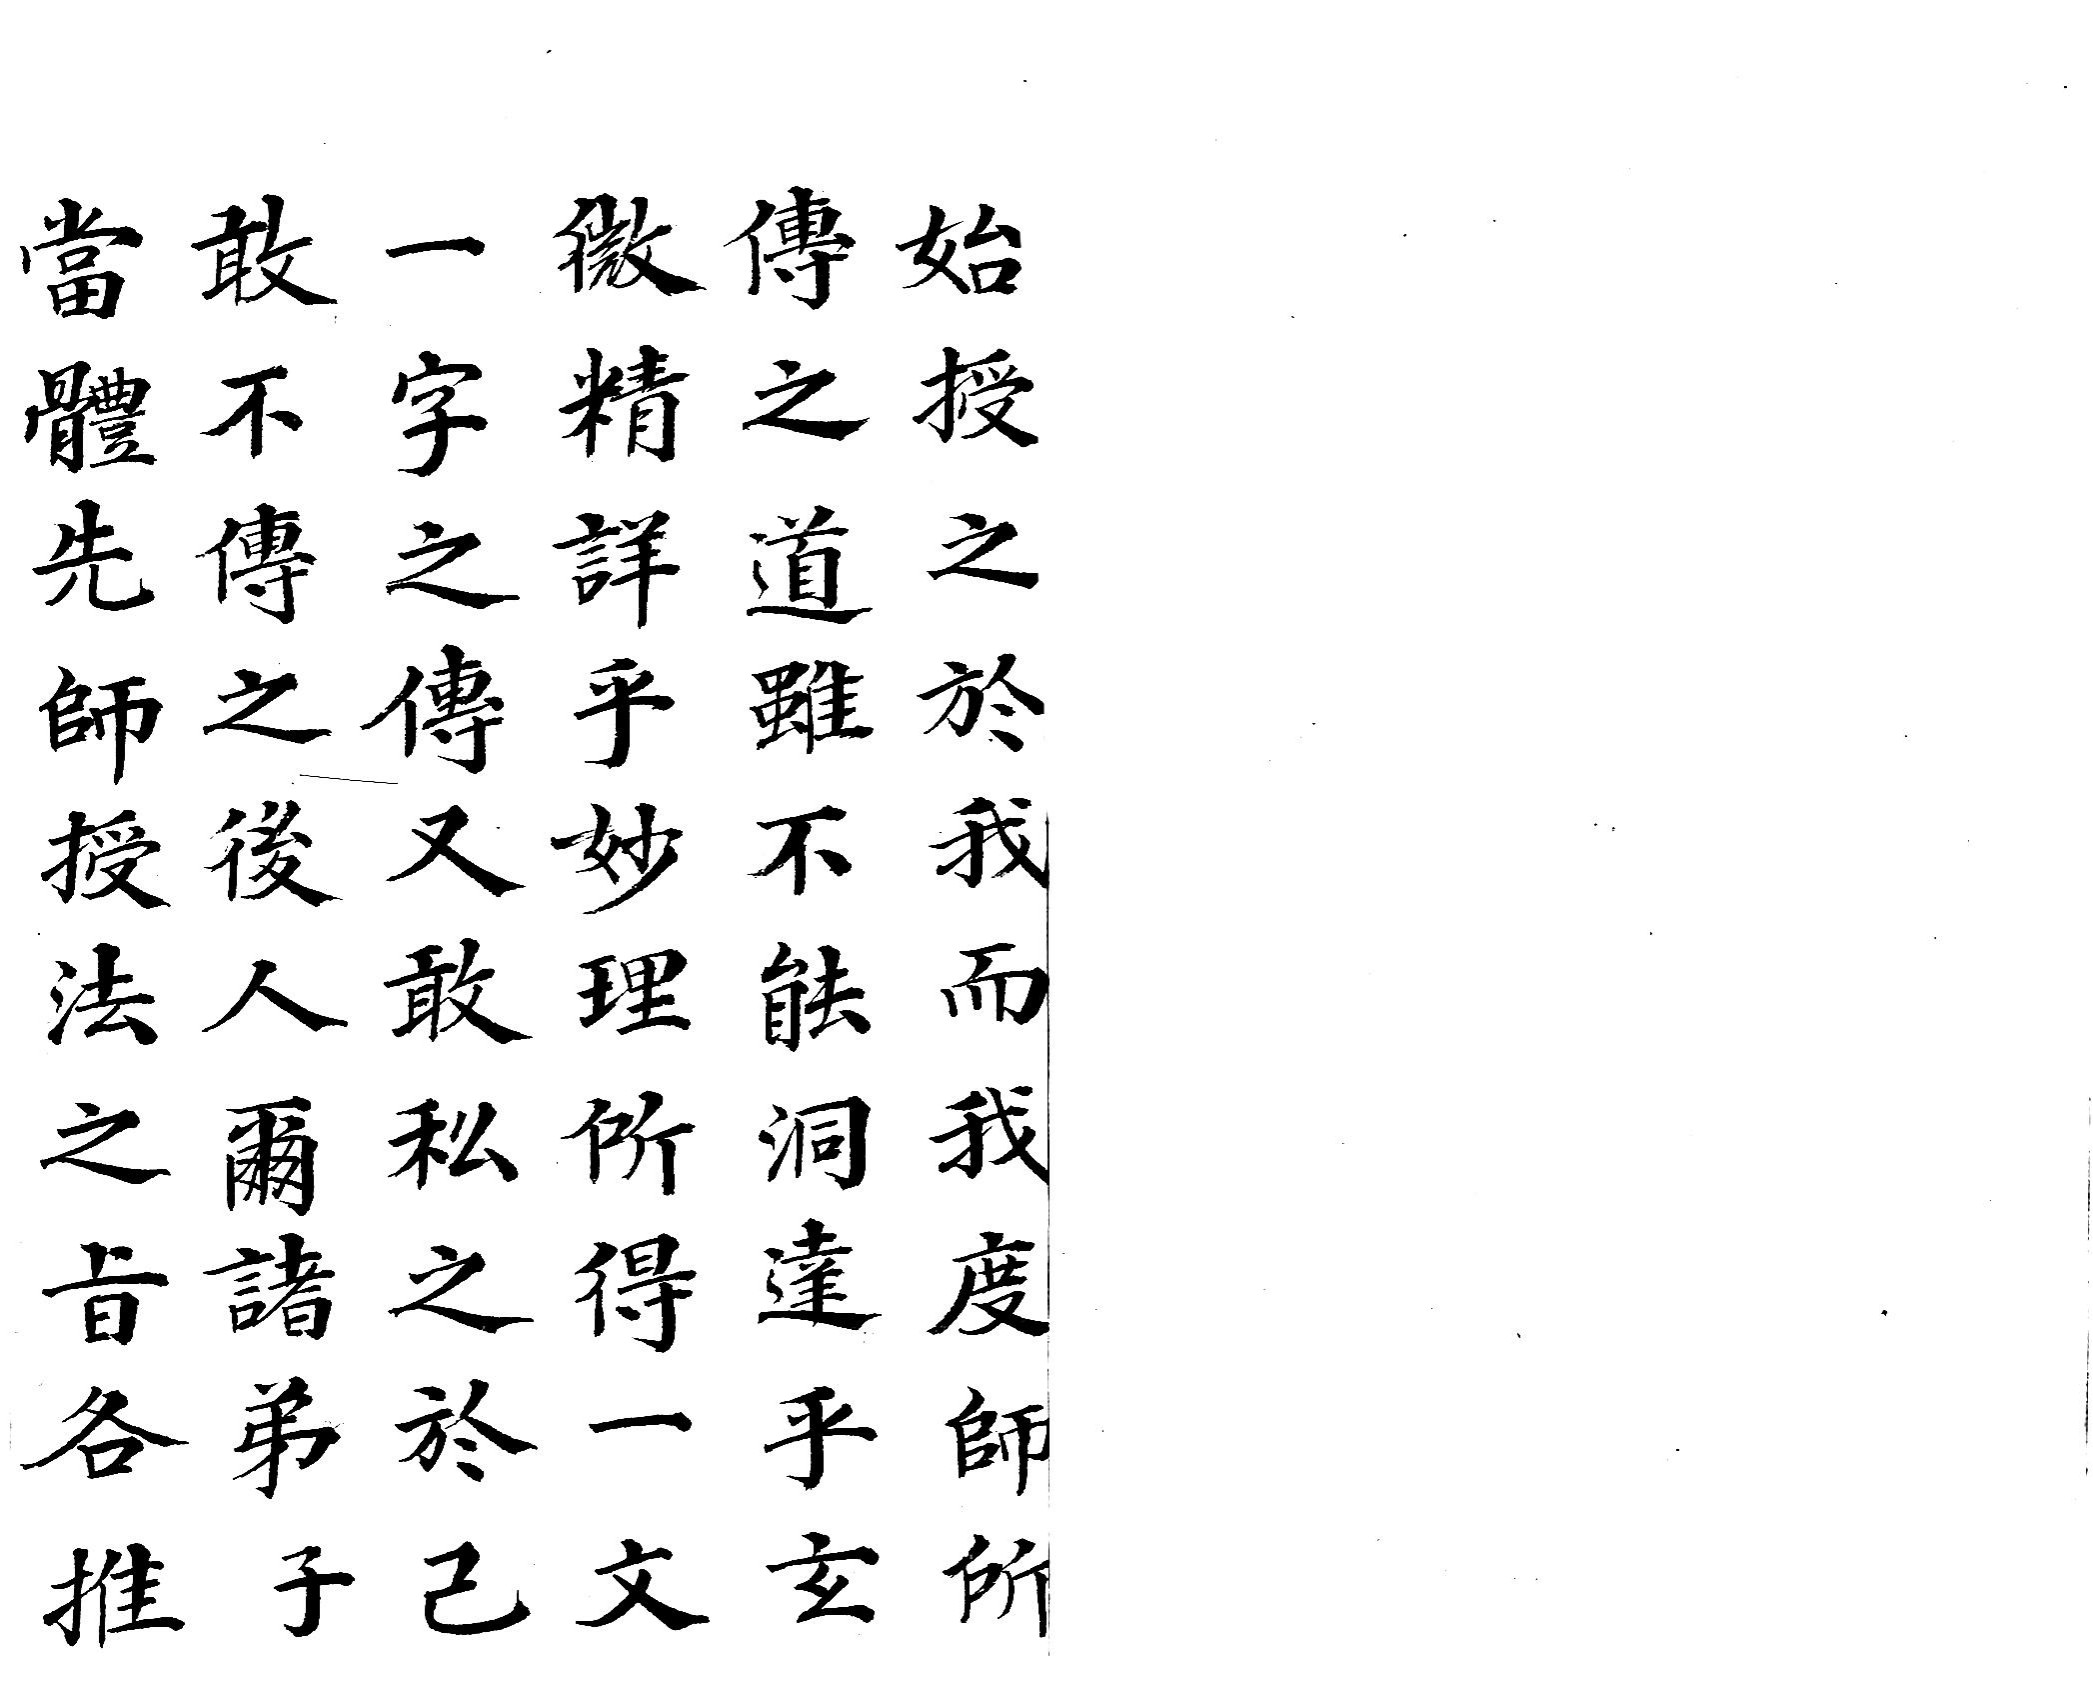 始授之於我而我度師所
傳之道雖不能洞達乎玄
微精詳乎妙理所得一文
一字之傳又敢私之於己
敢不傳之後人爾諸弟子
當體先師授法之旨各推